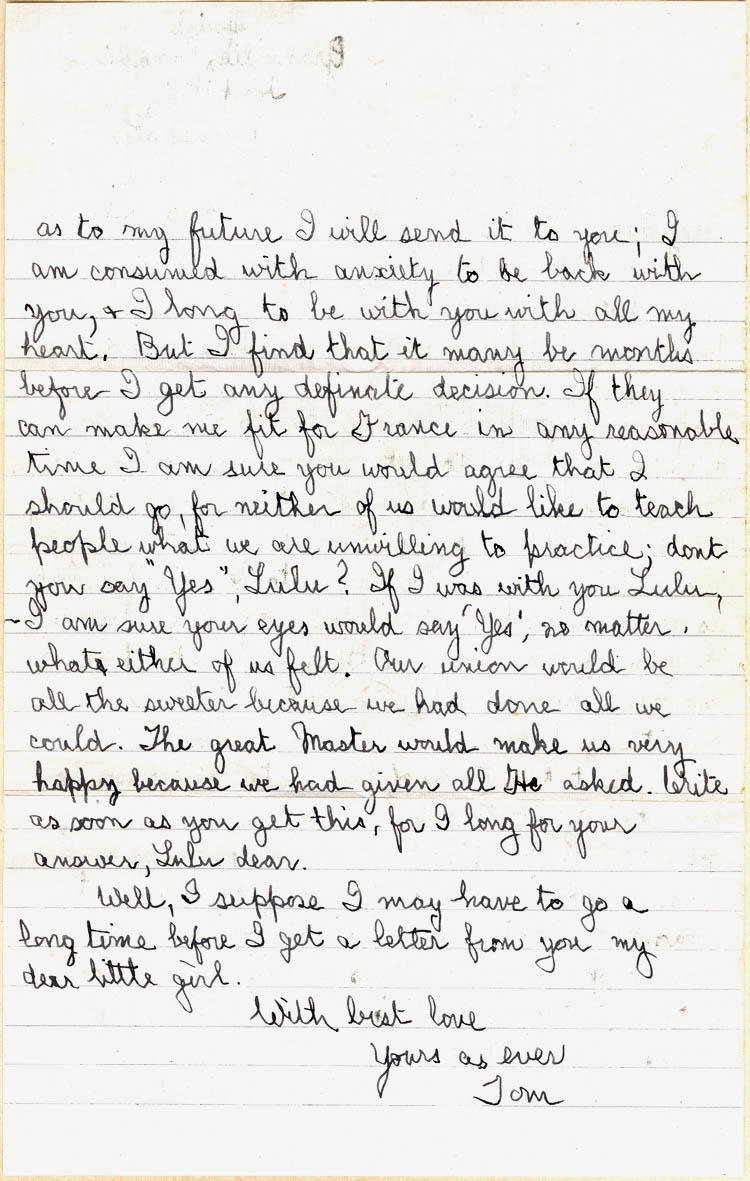 as to my future I will send it to you; I
am consumed with anxiety to be back with
you, & I long to be with you with all my
heart. But I find that it many be months
before I get any definate decision. If they
can make me fit for France in any reasonable
time I am sure you would agree that I
should go, for neither of us would like to teach
people what we are unwilling to practice; dont
you say "Yes", Lulu? If I was with you Lulu,
I am sure your eyes would say 'Yes', no matter
what either of us felt. Our union would be
all the sweeter because we had done all we
could. The great Master would make us very
happy because we had given all He asked. Write
as soon as you get this, for I long for your
answer, Lulu dear.
Well, I suppose I may have to go a
long time before I get a letter from you my
dear little girl.
With best love
Yours as ever
Tom